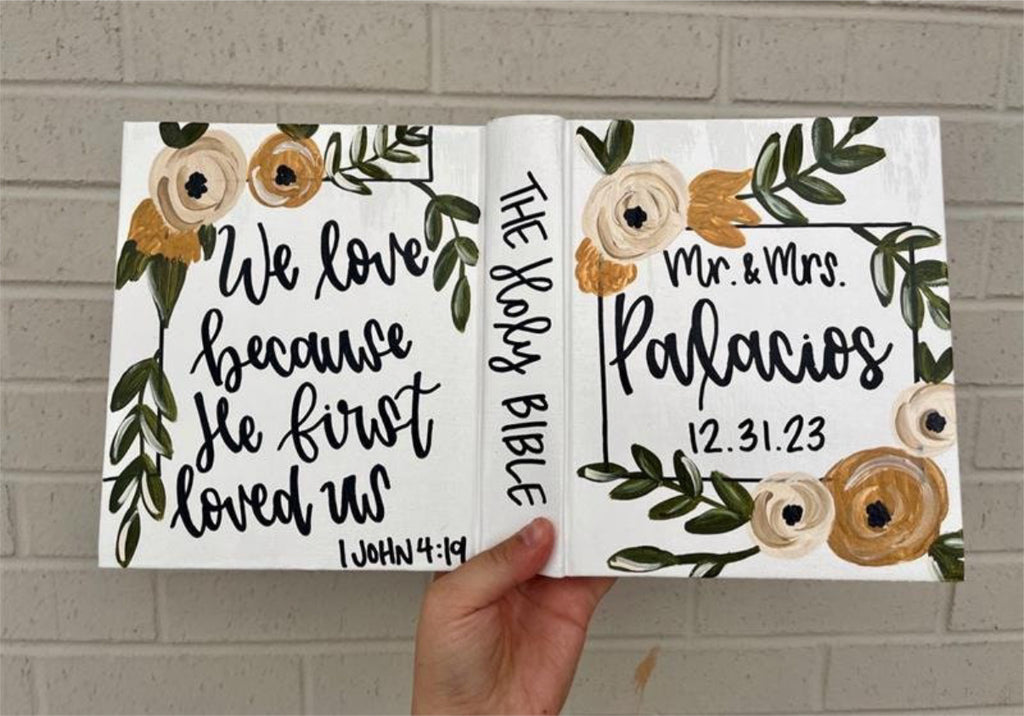 We love
because
He first
loved us
1 JOHN 4:19
THE Holy BIBLE
Mr. & Mrs.
Palacios
12.31.23